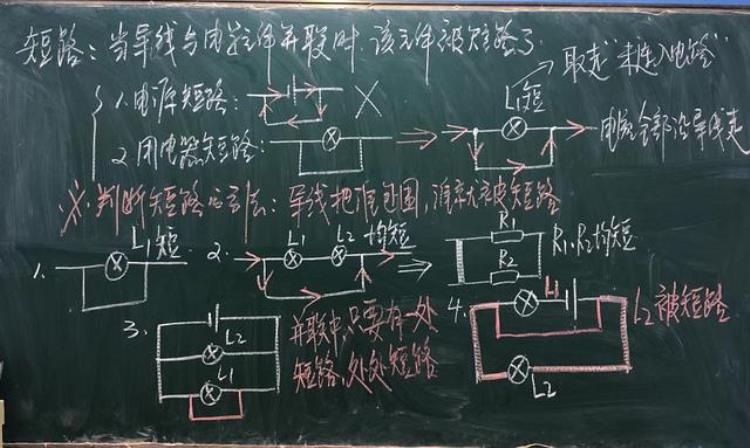 短路：当导线与电子元件并联时，该元件被短路了.
取走"未连入电路"
1.电源短路：
L₁短
2.用电器短路：
电流全部沿导线走
※.判断短路的方法：导线把谁包围，谁就被短路
1.
L₁短
2.
L₁ L₂ 均短
R₁
R₂
R₁、R₂均短
3.
L₂
L₁
并联中，只要有一处
短路，处处短路
4.
L₁
L₂
L₂被短路